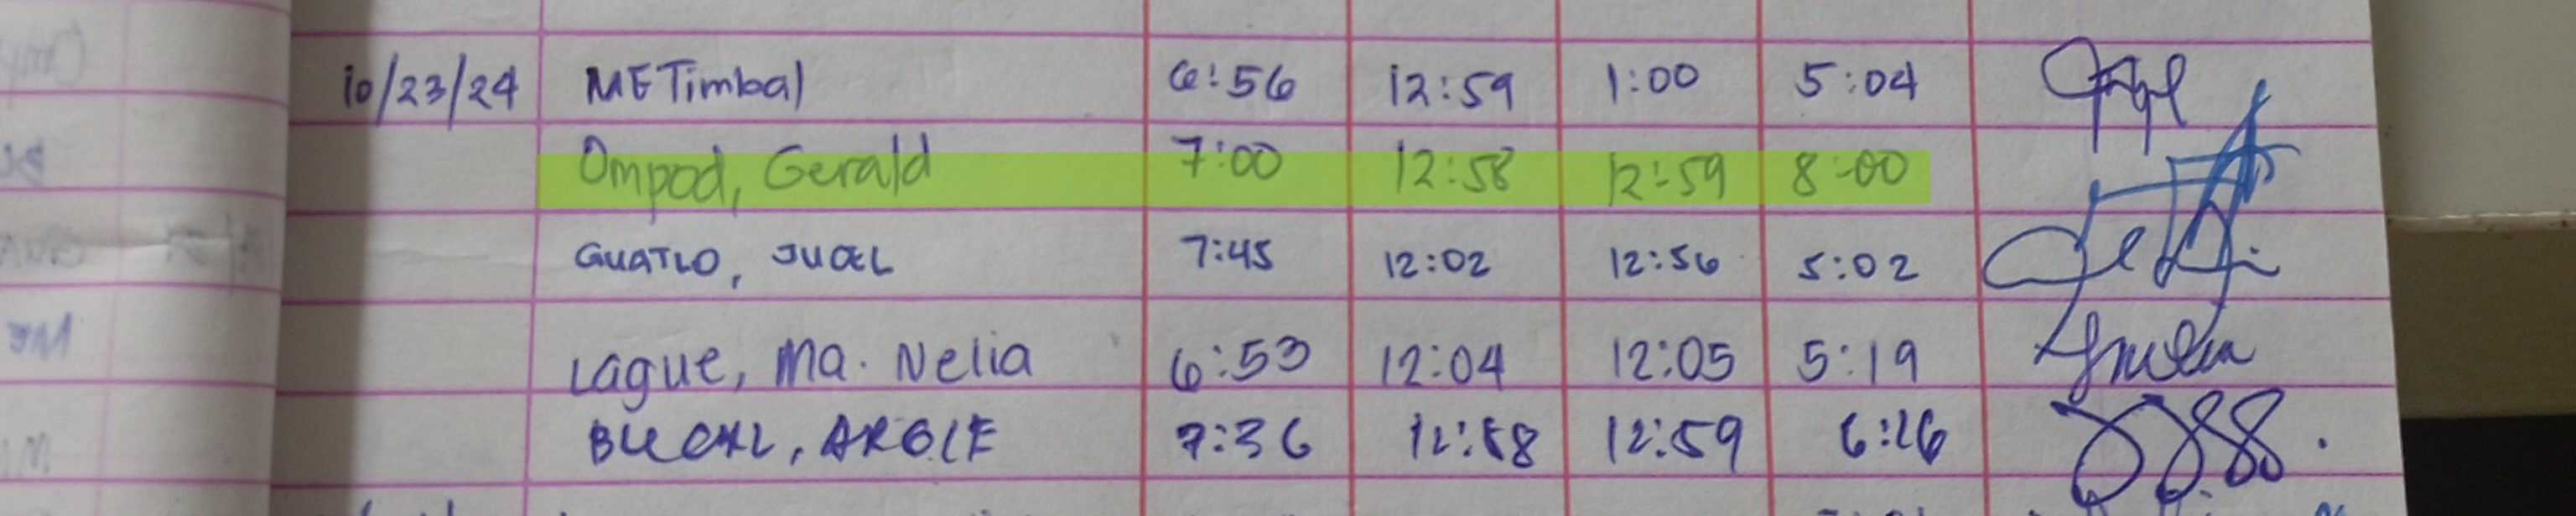 10/23/24 METimbal 6:56 12:59 1:00 5:04
Ompod, Gerald 7:00 12:58 12:59 8:00
GUATLO, JUOEL 7:45 12:02 12:56 5:02
Lague, Ma. Nelia 6:53 12:04 12:05 5:19
7:36 12:58 12:59 6:26